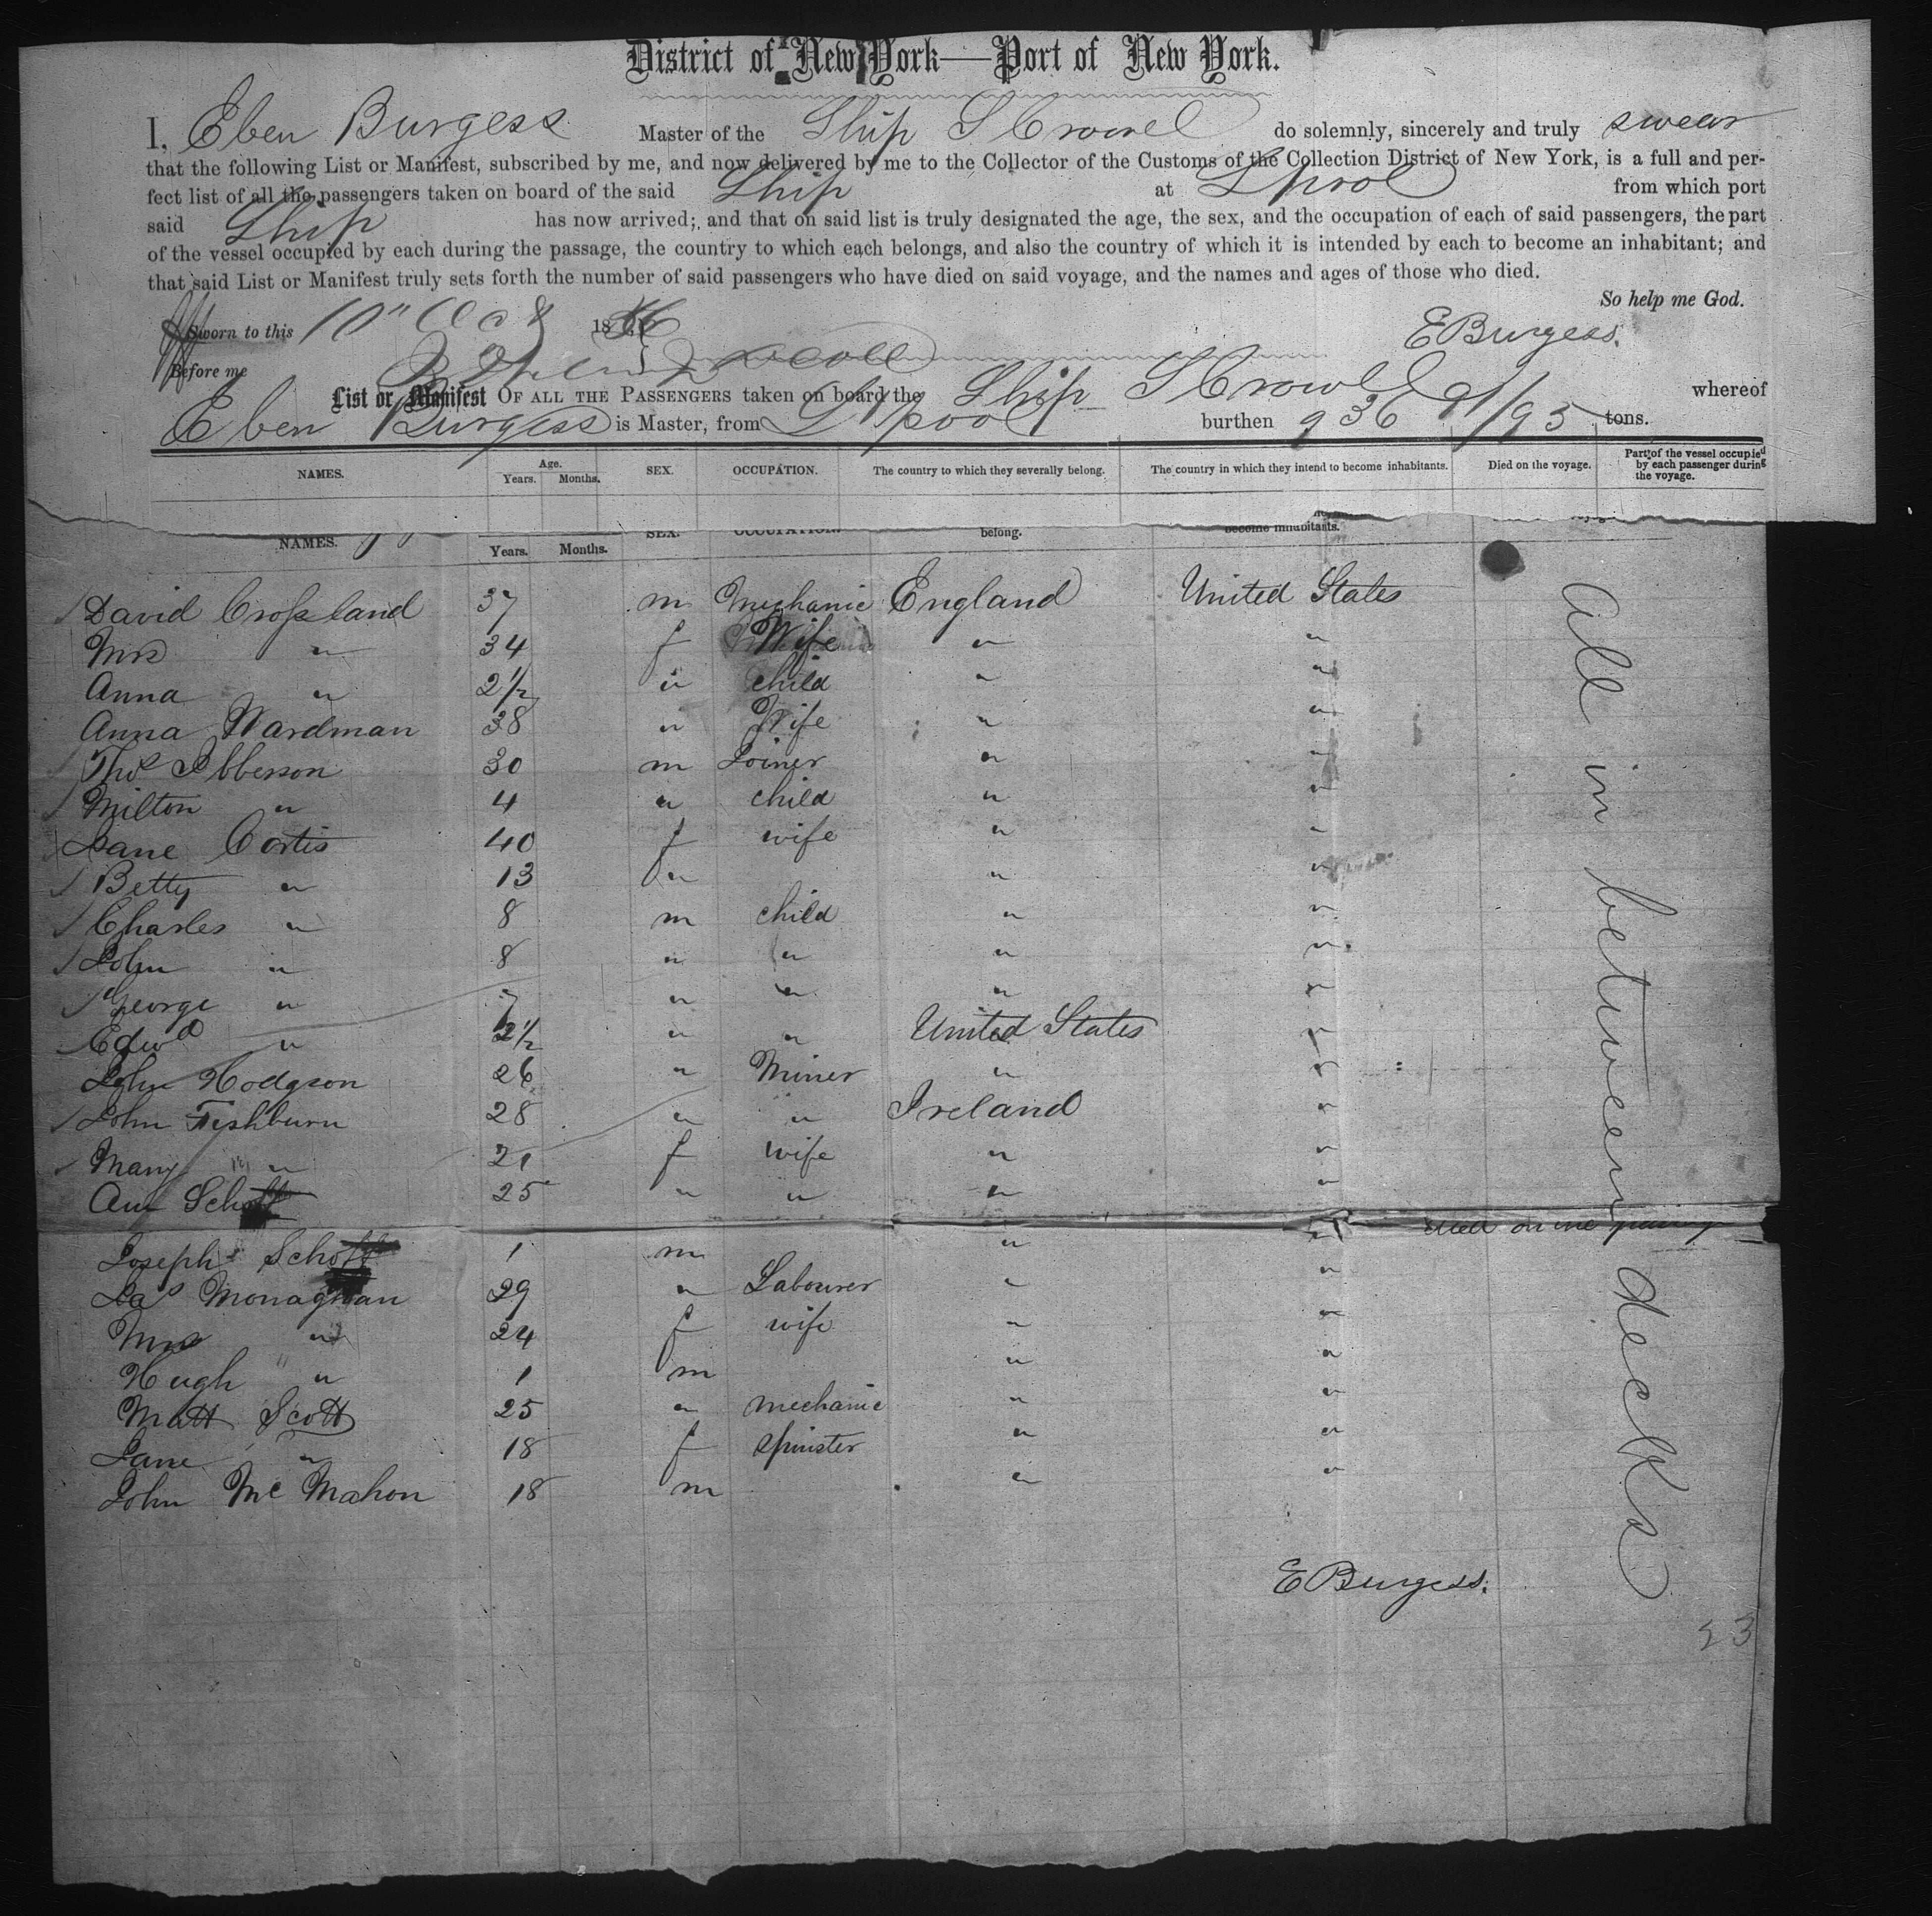 District of New York—Port of New York.
I, Eben Burgess Master of the Ship S Crowel do solemnly, sincerely and truly swear
that the following List or Manifest, subscribed by me, and now delivered by me to the Collector of the Customs of the Collection District of New York, is a full and per-
fect list of all the passengers taken on board of the said Ship at Lpool from which port
said Ship has now arrived; and that on said list is truly designated the age, the sex, and the occupation of each of said passengers, the part
of the vessel occupied by each during the passage, the country to which each belongs, and also the country of which it is intended by each to become an inhabitant; and
that said List or Manifest truly sets forth the number of said passengers who have died on said voyage, and the names and ages of those who died.
So help me God.
Sworn to this 10" 18
E Burgess.
Before me
List or Manifest OF ALL THE PASSENGERS taken on board the Ship S Crowell whereof
Eben Burgess is Master, from L'pool burthen 936 91/95 tons.
NAMES. Age. Years. Months. SEX. OCCUPATION. The country to which they severally belong. The country in which they intend to become inhabitants. Died on the voyage. Part of the vessel occupied by each passenger during the voyage.
NAMES. Years. Months. SEX. OCCUPATION. belong. become inhabitants.
David Crossland 37 m Mechanic England United States
Mrs " 34 f Wife " "
Anna " 2 1/2 " child " "
Anna Wardman 38 " Wife " "
Thos Ibberson 30 m Joiner " "
Milton " 4 " child " "
Jane Cortis 40 f wife " "
Betty " 13 " " "
Charles " 8 m child " "
John " 8 " " " "
George " 7 " " " "
Edwd " 2 1/2 " " United States "
John Hodgson 26 " Miner " "
John Fishburn 28 " " Ireland "
Mary " 21 f wife " "
Ann Schott 25 " " " "
Joseph Schott 1 m " " died on the passage
Jas Monaghan 29 " Labourer " "
Mrs " 24 f wife " "
Hugh " 1 m " "
Matt Scott 25 " mechanic " "
Jane " 18 f spinster " "
John Mc Mahon 18 m " "
All in between decks
E Burgess.
23